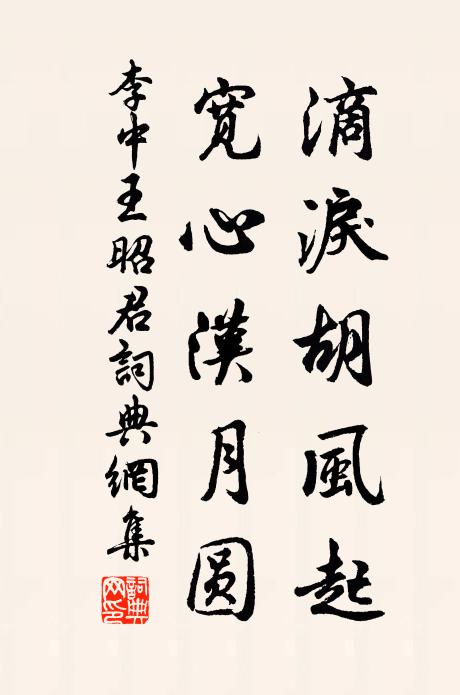 滴淚胡風起
寬心漢月圓
李中王昭君詞典網集
詞典网印